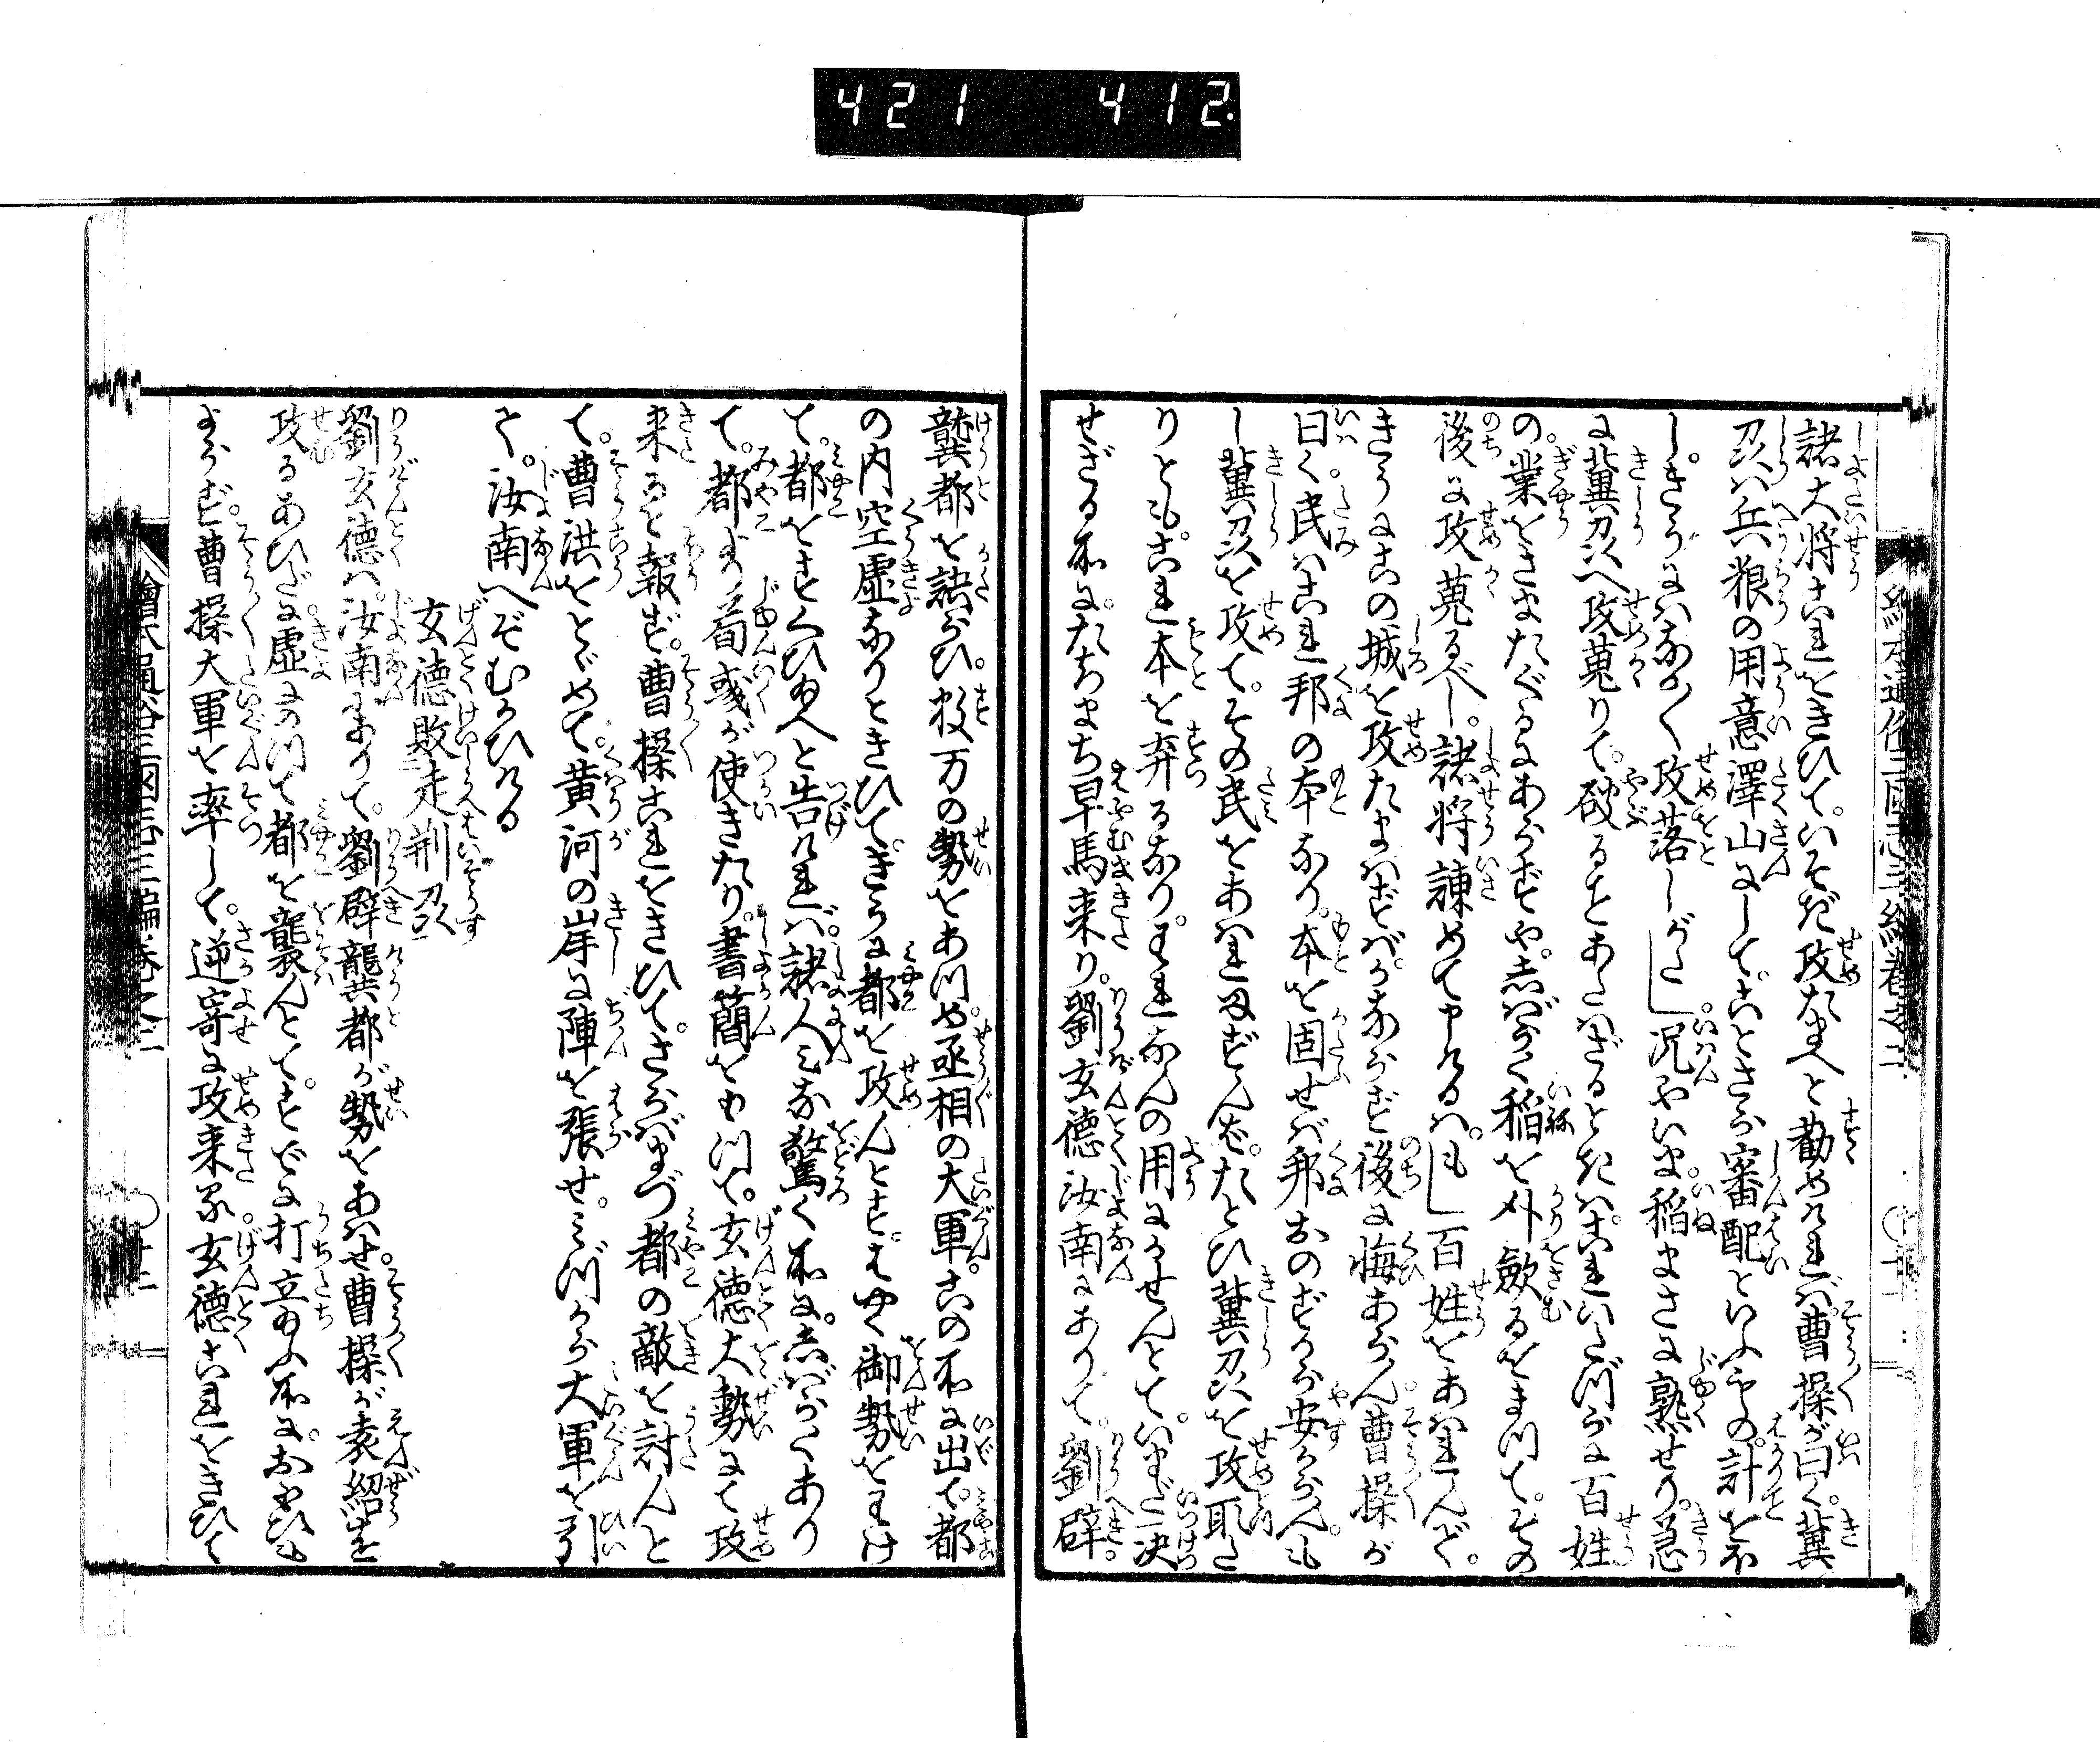 421 412.
繪本通俗三國志三編卷之二
諸大将これをきひていそぎ攻たまへと勧めければ曹操が曰く。冀
州ハ兵粮の用意澤山にして。ことさら審配といふもの。計をほ
し。きうにハなか〱攻落しがたし。况やいま。稲まさに熟せり。急
に冀州へ攻蒐りて。破ることあたハざるときハ。これいたづらに百姓
の。業をさまたぐるにあらずや。志ばらく稲を刈歛るをまつて。その
後に攻蒐るべし。諸将諌めて申けるハ。もし百姓をあはれんで。
きうにこの城を攻たまハずバ。かならず後に悔あらん。曹操が
曰く。民ハこれ邦の本なり。本を固せバ邦おのずから安からん。も
し冀州を攻て。その民をあはれまずんバ。たとひ冀州を攻取た
りとも。これ本を弃るなり。それなんの用にかせんとて。いまだ一决
せざる所に。たちまち早馬来り。劉玄德汝南にありて。劉辟。
龔都を誘ひ。数万の勢をあつめ。丞相の大軍。この所に出て。都
の内空虚なりときひて。きうに都を攻んとす。はやく御勢をわけ
て。都をすくひ給へと告ければ。諸人みな驚く所に。志ばらくあり
て。都より荀彧が使きたり。書簡をもつて。玄德大勢にて攻
来ると報ず。曹操これをきひて。さらバまづ都の敵を討んと
て。曹洪をとゞめて。黄河の岸に陣を張せ。みづから大軍を引
て。汝南へぞむかひける
玄德敗走荆州
劉玄德ハ。汝南にありて。劉辟龔都が勢をあハせ。曹操が袁紹を
攻るあひだに。虚にのつて都を襲んとて。すでに打立給ふ所に。おもひ
よらず。曹操大軍を率して。逆寄に攻来る。玄德これをきひて
繪本通俗三國志三編卷之二